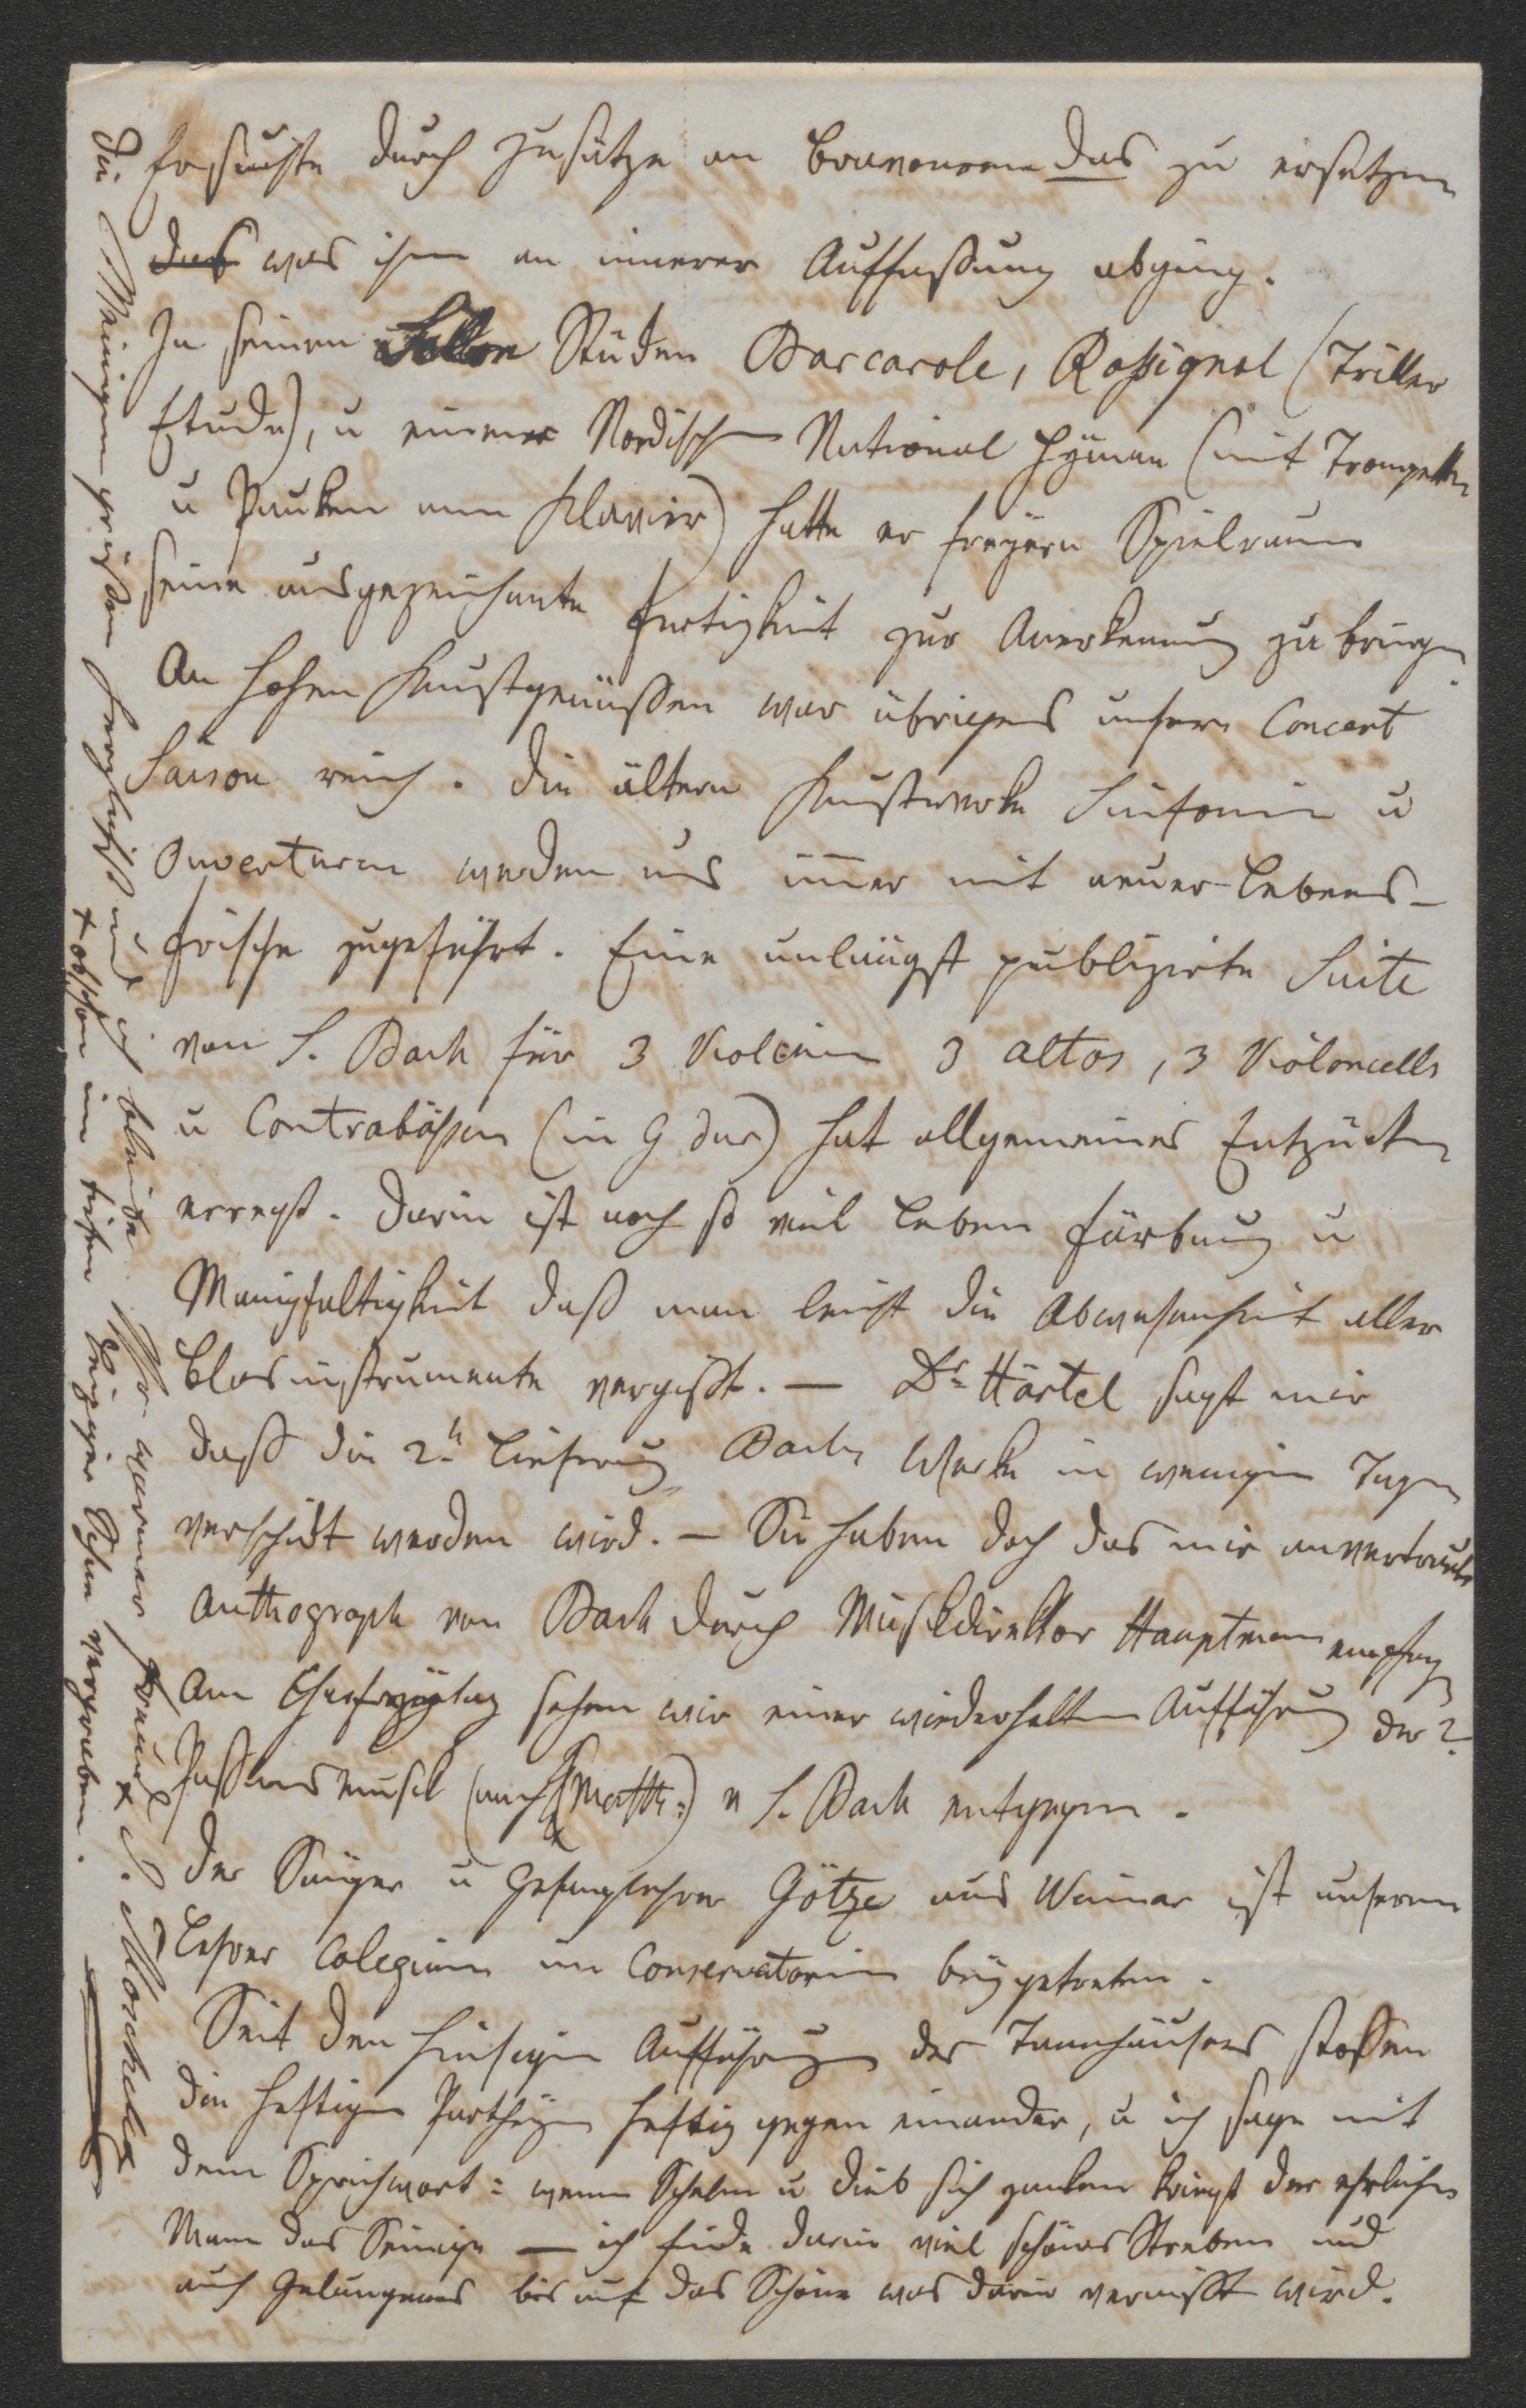 Er suchte durch Zusätze an Bravouren das zu ersetzen
das was ihm an innerer Auffassung abging.
In seinen Stüden Barcarole, Rossignol (Triller
Etude), u einer Nordischen National Hÿmne (mit Trompetten
u Pauken am Klavier) hatte er freÿern Spielraum
seine ausgezeichnete Fertigkeit zur Anerkennung zu bringen.
An hohen Kunstgenüssen war übrigens unsere Concert
Saison reich. Die ältern Kunstwerke Sinfonien u
Ouverturen werden uns im̄er mit neuer Lebens-
frische zugeführt. Eine unlängst publizirte Suite
von S. Bach für 3 Violinen 3 altos, 3 Violoncells
u Contrabässen (in G dur) hat allgemeines Entzücken
erregt. Darin ist noch so viel Leben Färbung u
Mannigfaltigkeit daß man leicht die Abwesenheit aller
Blasinstrumente vergißt. — Dr Härtel sagt mir
daß die 2te Lieferung Bachs Werke in wenigen Tagen
verschickt werden wird. — Sie haben doch das mir anvertraute
Authograph von Bach durch Musikdirektor Hauptmann empfangen?
Am Charfreÿtag sehen wir einer wiederholten Aufführung der
Passionsmusik (nach Matth:) v S. Bach entgegen.
Der Sänger u Gesanglehrer Götze aus Weimar ist unserem
Lehrer Colegium im Conservatorium beÿgetreten.
Seit den hiesigen Aufführungen des Tannhäusers stossen
die heftigen Partheÿen heftig gegen einander, u ich sage mit
dem Sprichwort: wenn Schelm u Dieb sich zanken kriegt der ehrliche
Mann das Seinige — ich finde darin viel schönes Streben und
auch Gelungenes bis auf das Schöne was darin vermißt wird.
Die Meinigen grüßen herzlichst und ich bleibe Ihr warmer Freund I. Moscheles
+ obschon im tiefen vergraben.